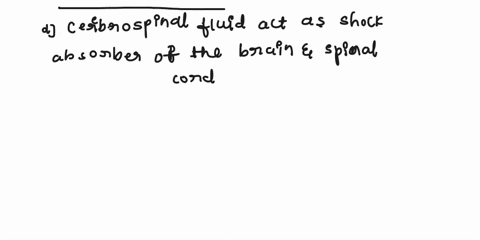 d) Cerebrospinal fluid act as shock
absorber of the brain & spinal
cord